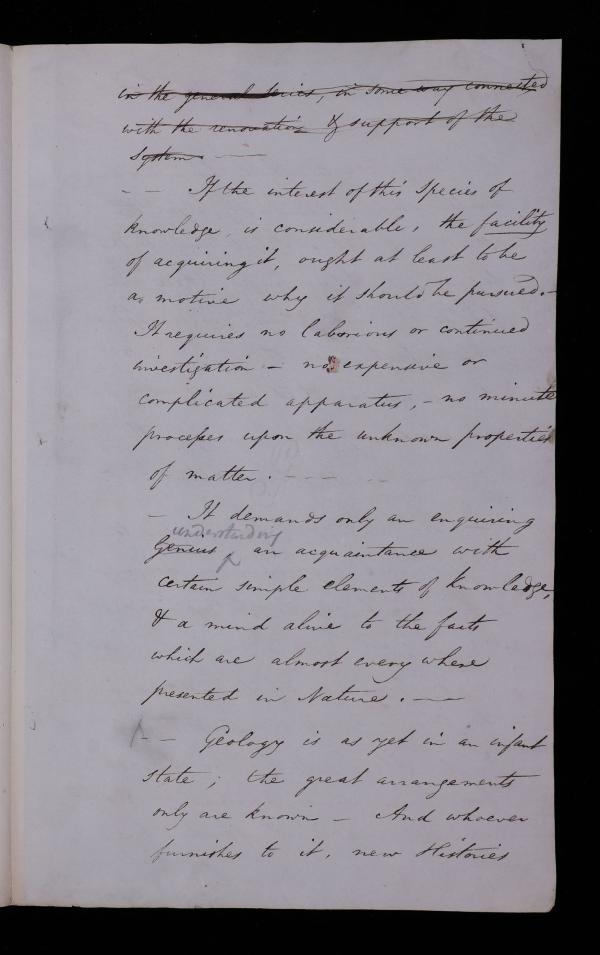 in the general series, in some way connected
with the renovation & support of the
System. —
— — If the interest of this Species of
knowledge, is considerable, the facility
of acquiring it, ought at least to be
a motive why it should be pursued. —
It requires no laborious or continued
investigation — no expensive or
complicated apparatus, — no minute
processes upon the unknown properties
of matter. - - - -
— It demands only an enquiring
understanding
Genius an acquaintance with
certain simple elements of knowledge,
& a mind alive to the facts
which are almost every where
presented in Nature. —
— — Geology is as yet in an infant
state; the great arrangements
only are known — And whoever
furnishes to it, new Histories